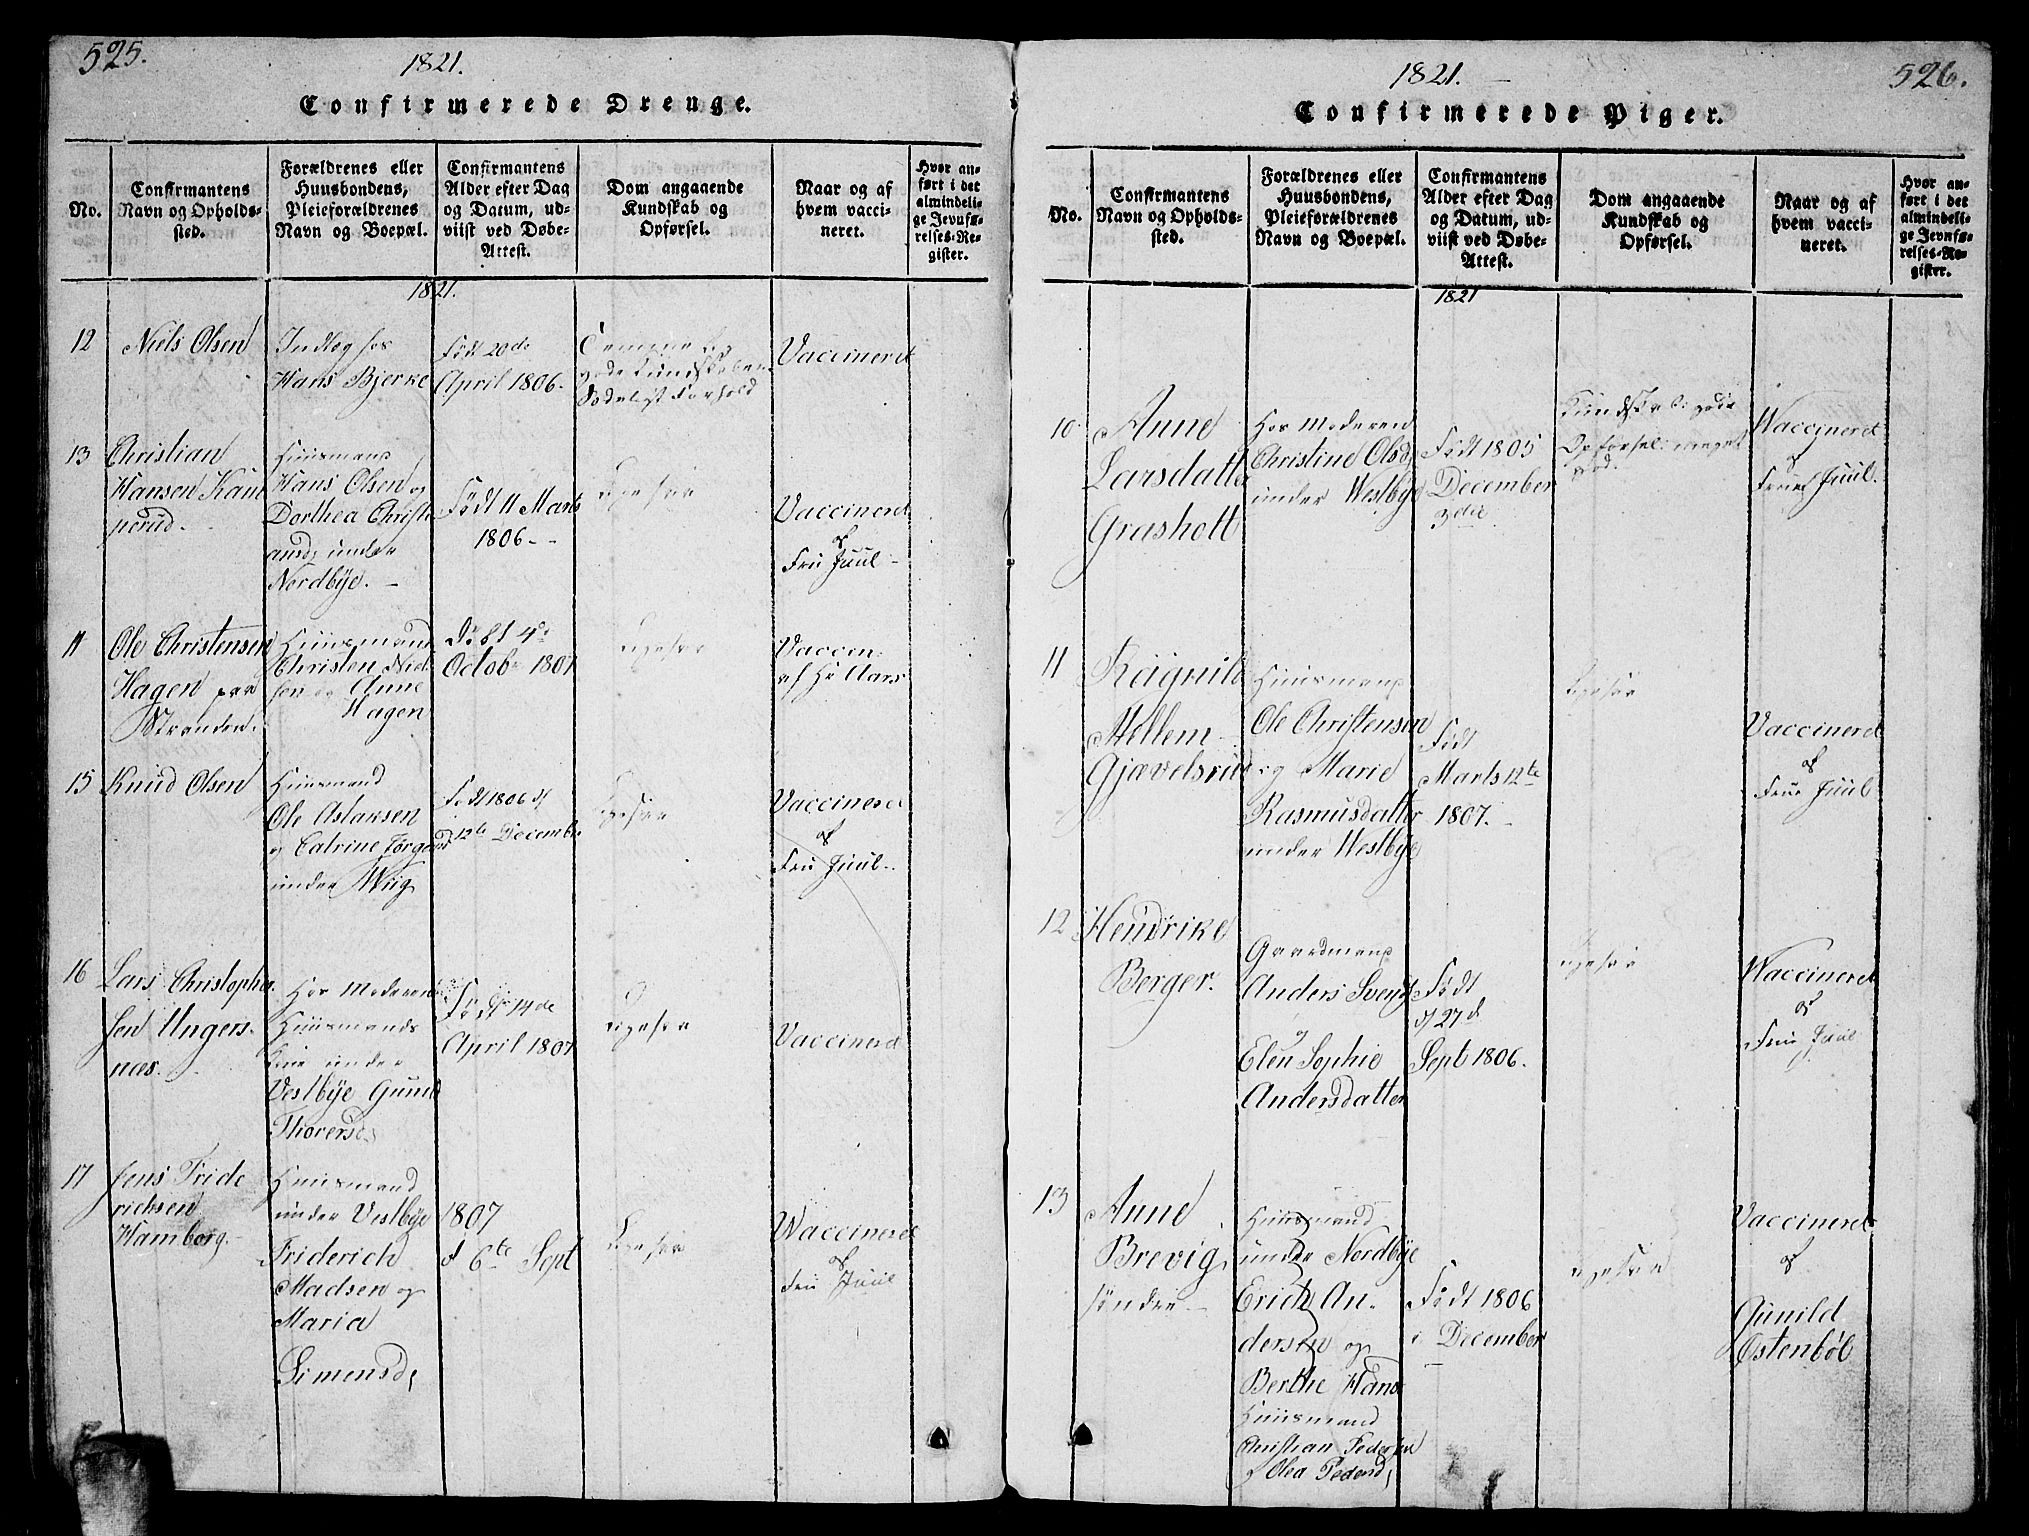 525.
1821.
Confirmerede Drenge.
No.
Confirmantens
Navn og Opholds-
sted.
Forældrenes eller
Huusbondens,
Pleieforældrenes
Navn og Boepæl.
Confirmantens
Alder efter Dag
og Datum, ud-
viist ved Døbe-
Attest.
Dom angaaende
Kundskab og
Opførsel.
Naar og af
hvem vacci-
neret.
Hvor an-
ført i det
almindeli-
ge Jevnfø-
relses-Re-
gister.
1821.
12
Niels Olsen
Hans Bjerke
Født 20de
April 1806.
gode Kundskaber
Sædeligt Forhold
Vaccineret
13
Christian
Hansen Kam
perud.
Huusmand
Hans Olsen og
Dorthea Christi
ansd, under
Nordbye. -
Født 11 Marts
1806 - -
Ligesaa
Vaccineret
af
Fru Juul -
Ole Christensen
Hagen paa
Stranden.
Huusmand
Christen Niel
sen og Anne
Hagen
4de
Octobr 1807
Ligesaa
Vaccin.
af Hr Aars
15
Knud Olsen
Huusmand
Ole Aslaksen
og Catrine Torgersd
under Wiig
Født 1806 d
12te Decembr
Ligesaa
Vaccineret
af
Fru Juul -
16
Lars Christopher
sen Ungers-
næs.
Hos Moderen
Huusmands
Kone under
Vestbye Guni
Thoversd,
Fød d 14de
April 1807
Ligesaa
Vaccineret
17
Jens Fride
richsen
Hamborg. -
Huusmand
under Vestbye
Friderich
Madsen og
Maria
Simensd,
1807
d 6te Sept
Ligesaa
Waccineret
af
Fru Juul
1821. -
526.
Confirmerede Piger.
No.
Confirmantens
Navn og Opholds-
sted.
Forældrenes eller
Huusbondens,
Pleieforældrenes
Navn og Boepæl.
Confirmantens
Alder efter Dag
og Datum, ud-
viist ved Døbe-
Attest.
Dom angaaende
Kundskab og
Opførsel.
Naar og af
hvem vacci-
neret.
Hvor an-
ført i det
almindeli-
ge Jevnfø-
relses-Re-
gister.
1821
10
Anne
Larsdatter
Grasholt
Hos Moderen
Christine Olsd,
under Westbye
Født 1805
December
3die
Kundskab: gode
Opførsel: meget
god.
Waccineret
af
Frue Juul.
11
Ragnild
Mellem
Gjævelsrud
Huusmand
Ole Christensen
og Marie
Rasmusdatter
under Westbye
Født
Marts 12te
1807. -
Ligesaa
Vaccineret
af
Frue Juul
12
Hendrike
Berger.
Gaardmand
Anders Svend
og
Elen Sophie
Andersdatter
Født
d 27d
Sept 1806.
Ligesaa
Waccineret
af
Fru Juul
13
Anne
Brevig
søndre -
Huusmand
under Nordbye
Erich An-
dersen og
Berthe Hans
Huusmand
Christian Pedersen
Olea Pedersd,
Født 1806
i December
-
Ligesaa
Vaccineret
af
Gunild
Østenbøl